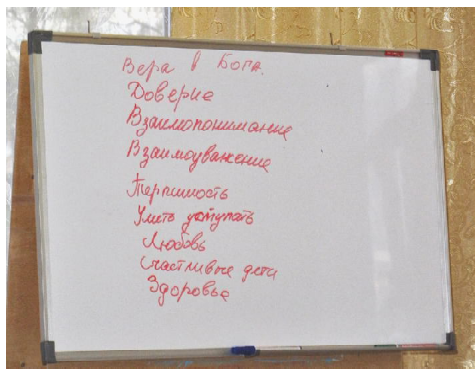 Вера в Бога.
Доверие
Взаимопонимание
Взаимоуважение
Терпимость
Уметь уступать
Любовь
Счастливые дети
Здоровье